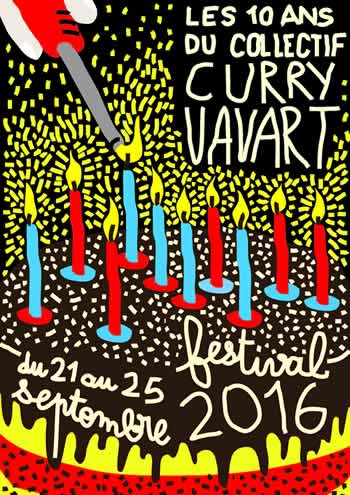 LES 10 ANS
DU COLLECTIF
CURRY
VAVART
festival
du 21 au 25
septembre
2016